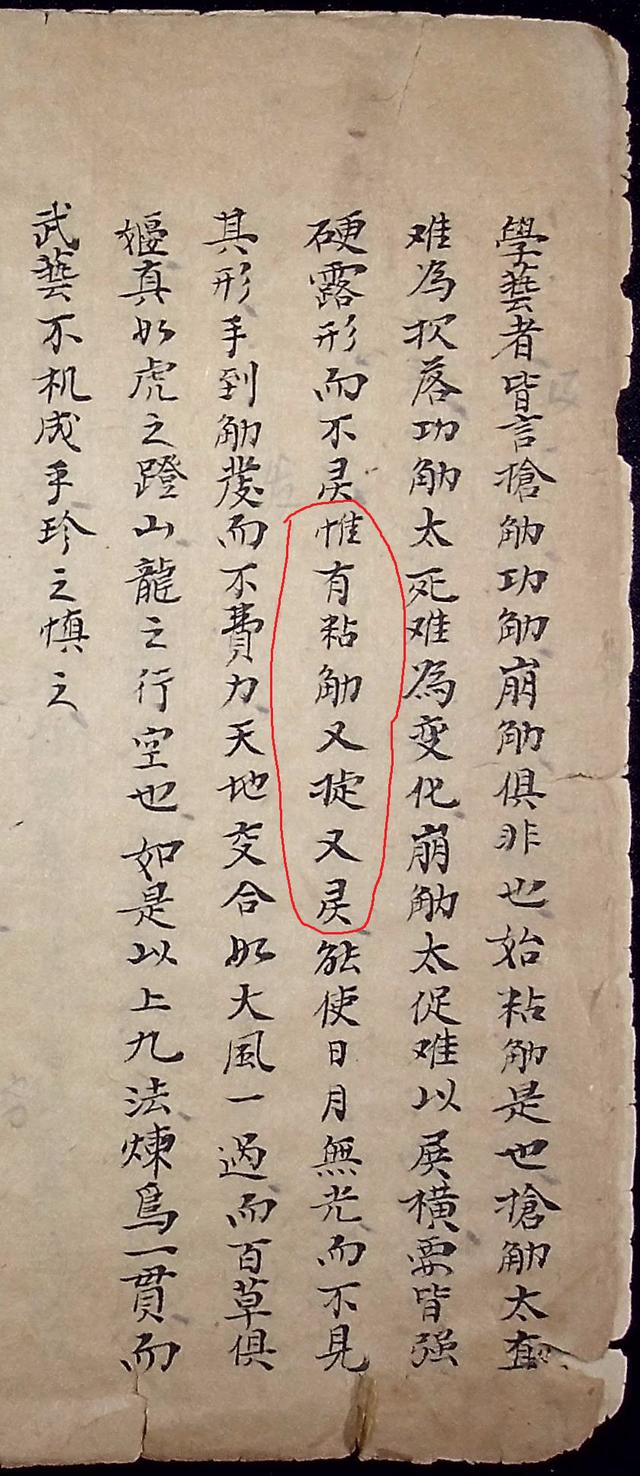 學藝者皆言搶觔功觔崩觔俱非也始粘觔是也搶觔太直
难為扻落功觔太死难為变化崩觔太促难以展橫要皆强
硬露形而不灵惟有粘觔又㨃又灵能使日月無光而不見
其形手到觔發而不費力天地交合如大風一過而百草俱
㛐真如虎之蹬山龍之行空也如是以上九法煉爲一貫而
武藝不机成乎珍之慎之